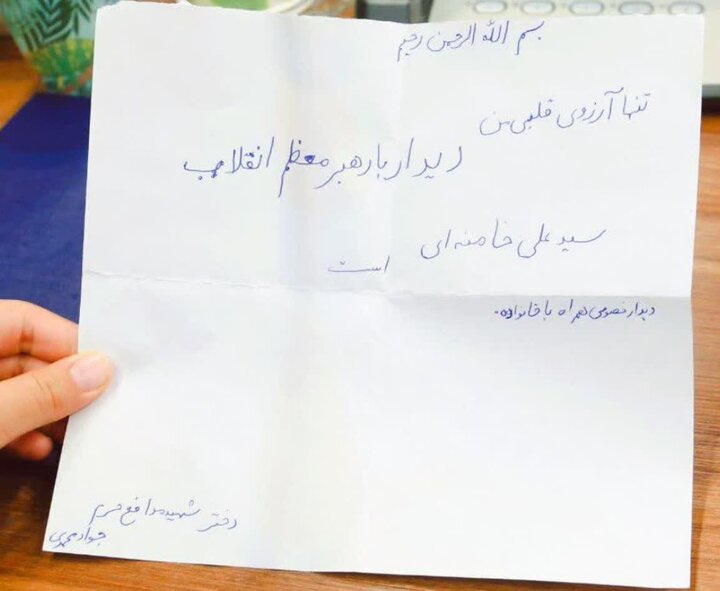 بسم الله الرحمن رحیم
تنها آرزوی قلبی من
دیدار با رهبر معظم انقلاب
سید علی خامنه ای
است
دیدار خصوصی همراه با خانواده.
دختر شهید مدافع حرم
جواد محمدی